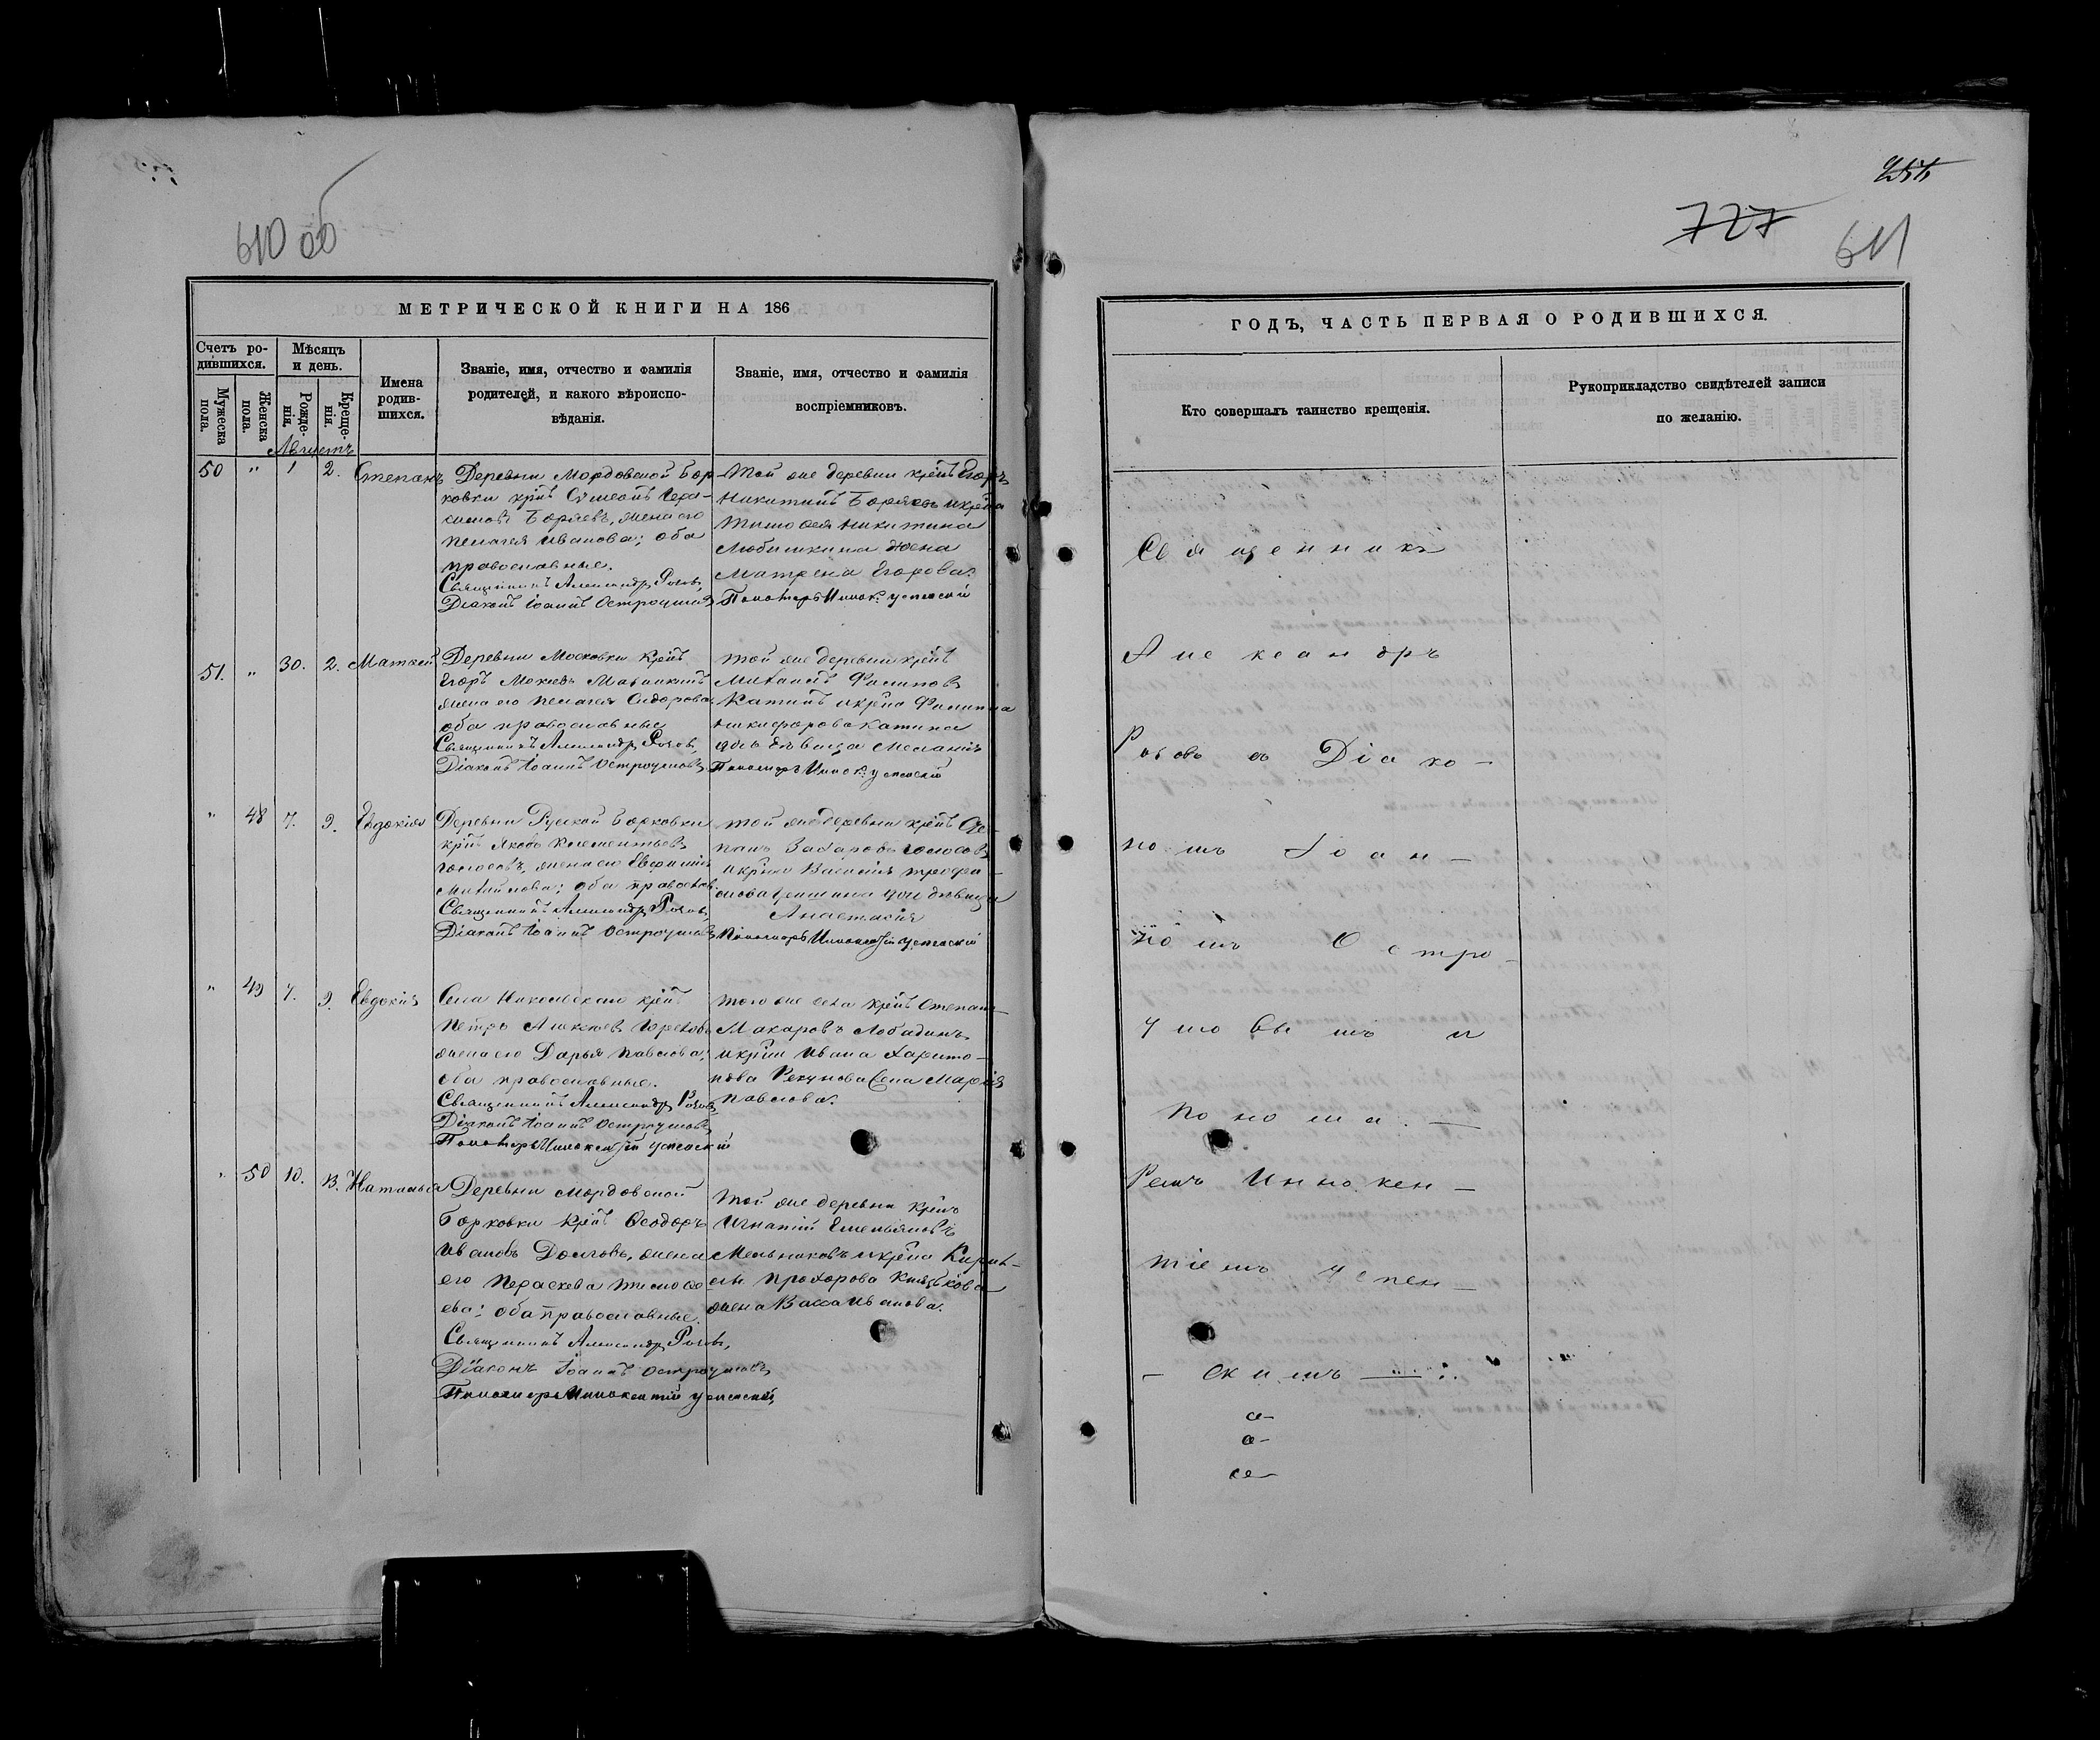 610 об
727
611
МЕТРИЧЕСКОЙ КНИГИ НА 186
Счетъ ро-
дившихся.
Мѣсяцъ
и день.
Мужеска
пола.
Женска
пола.
Рожде-
нія.
Креще-
нія.
Имена
родив-
шихся.
Званіе, имя, отчество и фамилія
родителей, и какого вѣроиспо-
вѣданія.
Званіе, имя, отчество и фамилія
воспріемниковъ.
Августъ
50 " 1 2. Степанъ
Деревни Мордовской Бор-
ковки крѣнъ Сѵмеонъ Гера-
симовъ Боряевъ, жена его
Пелагея Иванова; оба
православные.
Священникъ Александръ Роговъ,
Діаконъ Іоаннъ Остроумовъ
Той же деревни крѣнъ Егоръ
Никитинъ Боряевъ и крѣна
Тимоѳея Никитина
Любишкина жена
Матрена Егорова.
Пономарь Иннок: Успенскій
51. " 30. 2. Матѳей
Деревни Московки крѣнъ
Егоръ
жена его Пелагея Сидорова
оба православные
Священникъ Александръ Роговъ,
Діаконъ Іоаннъ Остроумовъ
Той же деревни крѣнъ
Михаилъ Филиповъ
Катинъ и крѣна Филиппа
Никифорова Катина
дочь дѣвица Меланія
Пономарь Иннок: Успенскій
" 48 7. 9. Евдокія
Деревни Русской Борковки
крѣнъ Яковъ Климентьевъ
Голосовъ, жена его Евфимія
Михайлова; оба православ.
Священникъ Александръ Роговъ,
Діаконъ Іоаннъ Остроумовъ
Той же деревни крѣнъ Сте-
панъ Захаровъ Голосовъ
и крѣна Василія Трофи-
мова дочь дѣвица
Анастасія
Пономарь Иннокентій Успенскій
" 49 7. 9. Евдокія
Села Никольскаго крѣнъ
Петръ Алексѣевъ
жена его Дарья Павлова;
оба православные.
Священникъ Александръ Роговъ,
Діаконъ Іоаннъ Остроумовъ
Пономарь Иннокентій Успенскій
Того же села крѣнъ Степанъ
Макаровъ Лобадинъ
и крѣна Ивана Харито-
нова жена Марія
Павлова.
" 50 10. 13. Наталья
Деревни Мордовской
Борковки крѣнъ Ѳеодоръ
Ивановъ Долговъ, жена
его Параскева Тимоѳе-
ева; оба православные.
Священникъ Александръ Роговъ,
Діаконъ Іоаннъ Остроумовъ,
Пономарь Иннокентій Успенскій
Той же деревни крѣнъ
Игнатій Емельяновъ
Мельниковъ и крѣна Кирил-
лы Прохорова Князькова
жена Васса Иванова.
ГОДЪ, ЧАСТЬ ПЕРВАЯ О РОДИВШИХСЯ.
Кто совершалъ таинство крещенія.
Рукоприкладство свидѣтелей записи
по желанію.
Священникъ
Александръ
Роговъ съ Діако-
номъ Іоан-
номъ Остро-
умовымъ и
Понома-
ремъ Иннокен-
тіемъ Успен-
скимъ